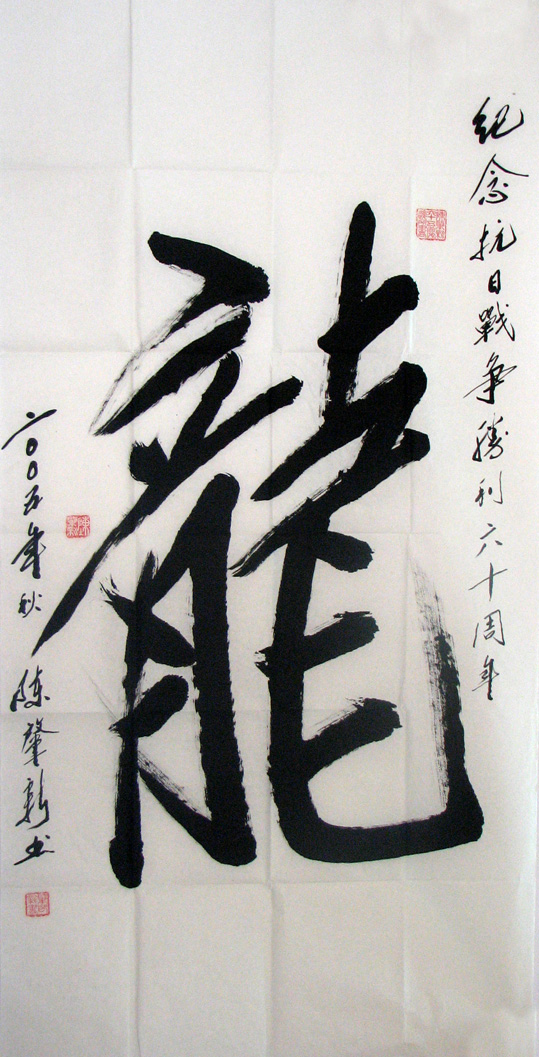 紀念抗日戰爭勝利六十周年
龍
二００五年秋 陳肇新书